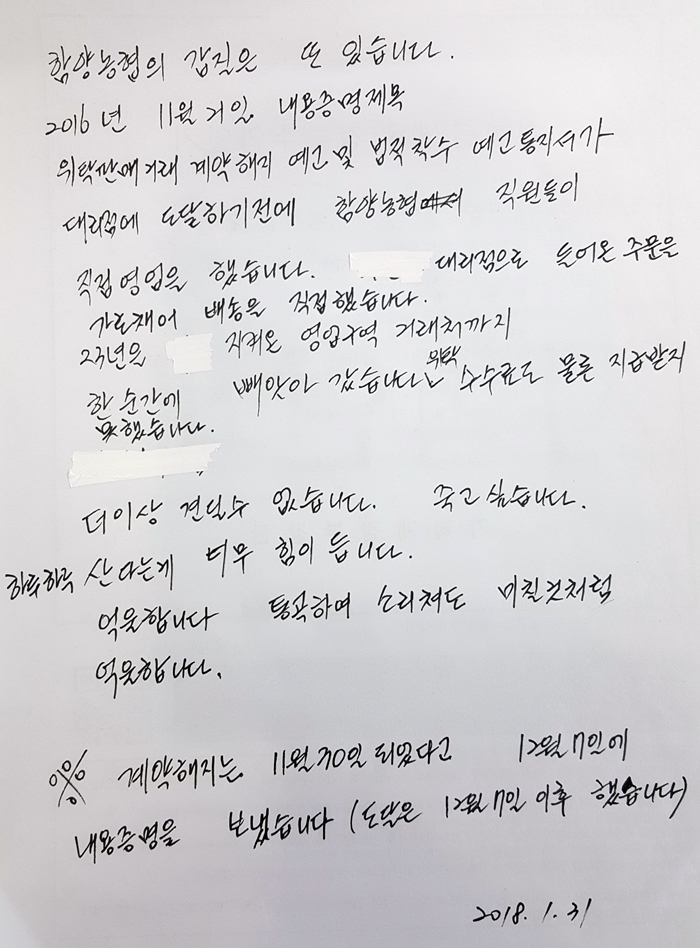 함양농협의 갑질은 또 있습니다.
2016년 11월 21일 내용증명제목
위탁판매거래 계약해지 예고 및 법적착수 예고통지서가
대리점에 도달하기전에 함양농협에서 직원들이
직접영업을 했습니다. 대리점으로 들어온 주문을
가로채어 배송을 직접했습니다.
23년을 지켜온 영업구역 거래처까지
한 순간에 빼앗아 갔습니다 위탁 수수료도 물론 지급받지
못했습니다.
더이상 견딜수 없습니다. 죽고 싶습니다.
하루하루 산다는게 너무 힘이 듭니다.
억울합니다 통곡하며 소리쳐도 미칠것처럼
억울합니다.
※ 계약해지는 11월 30일 되었다고 12월 7일에
내용증명을 보냈습니다 (도달은 12월 7일 이후 했습니다)
2018. 1. 31